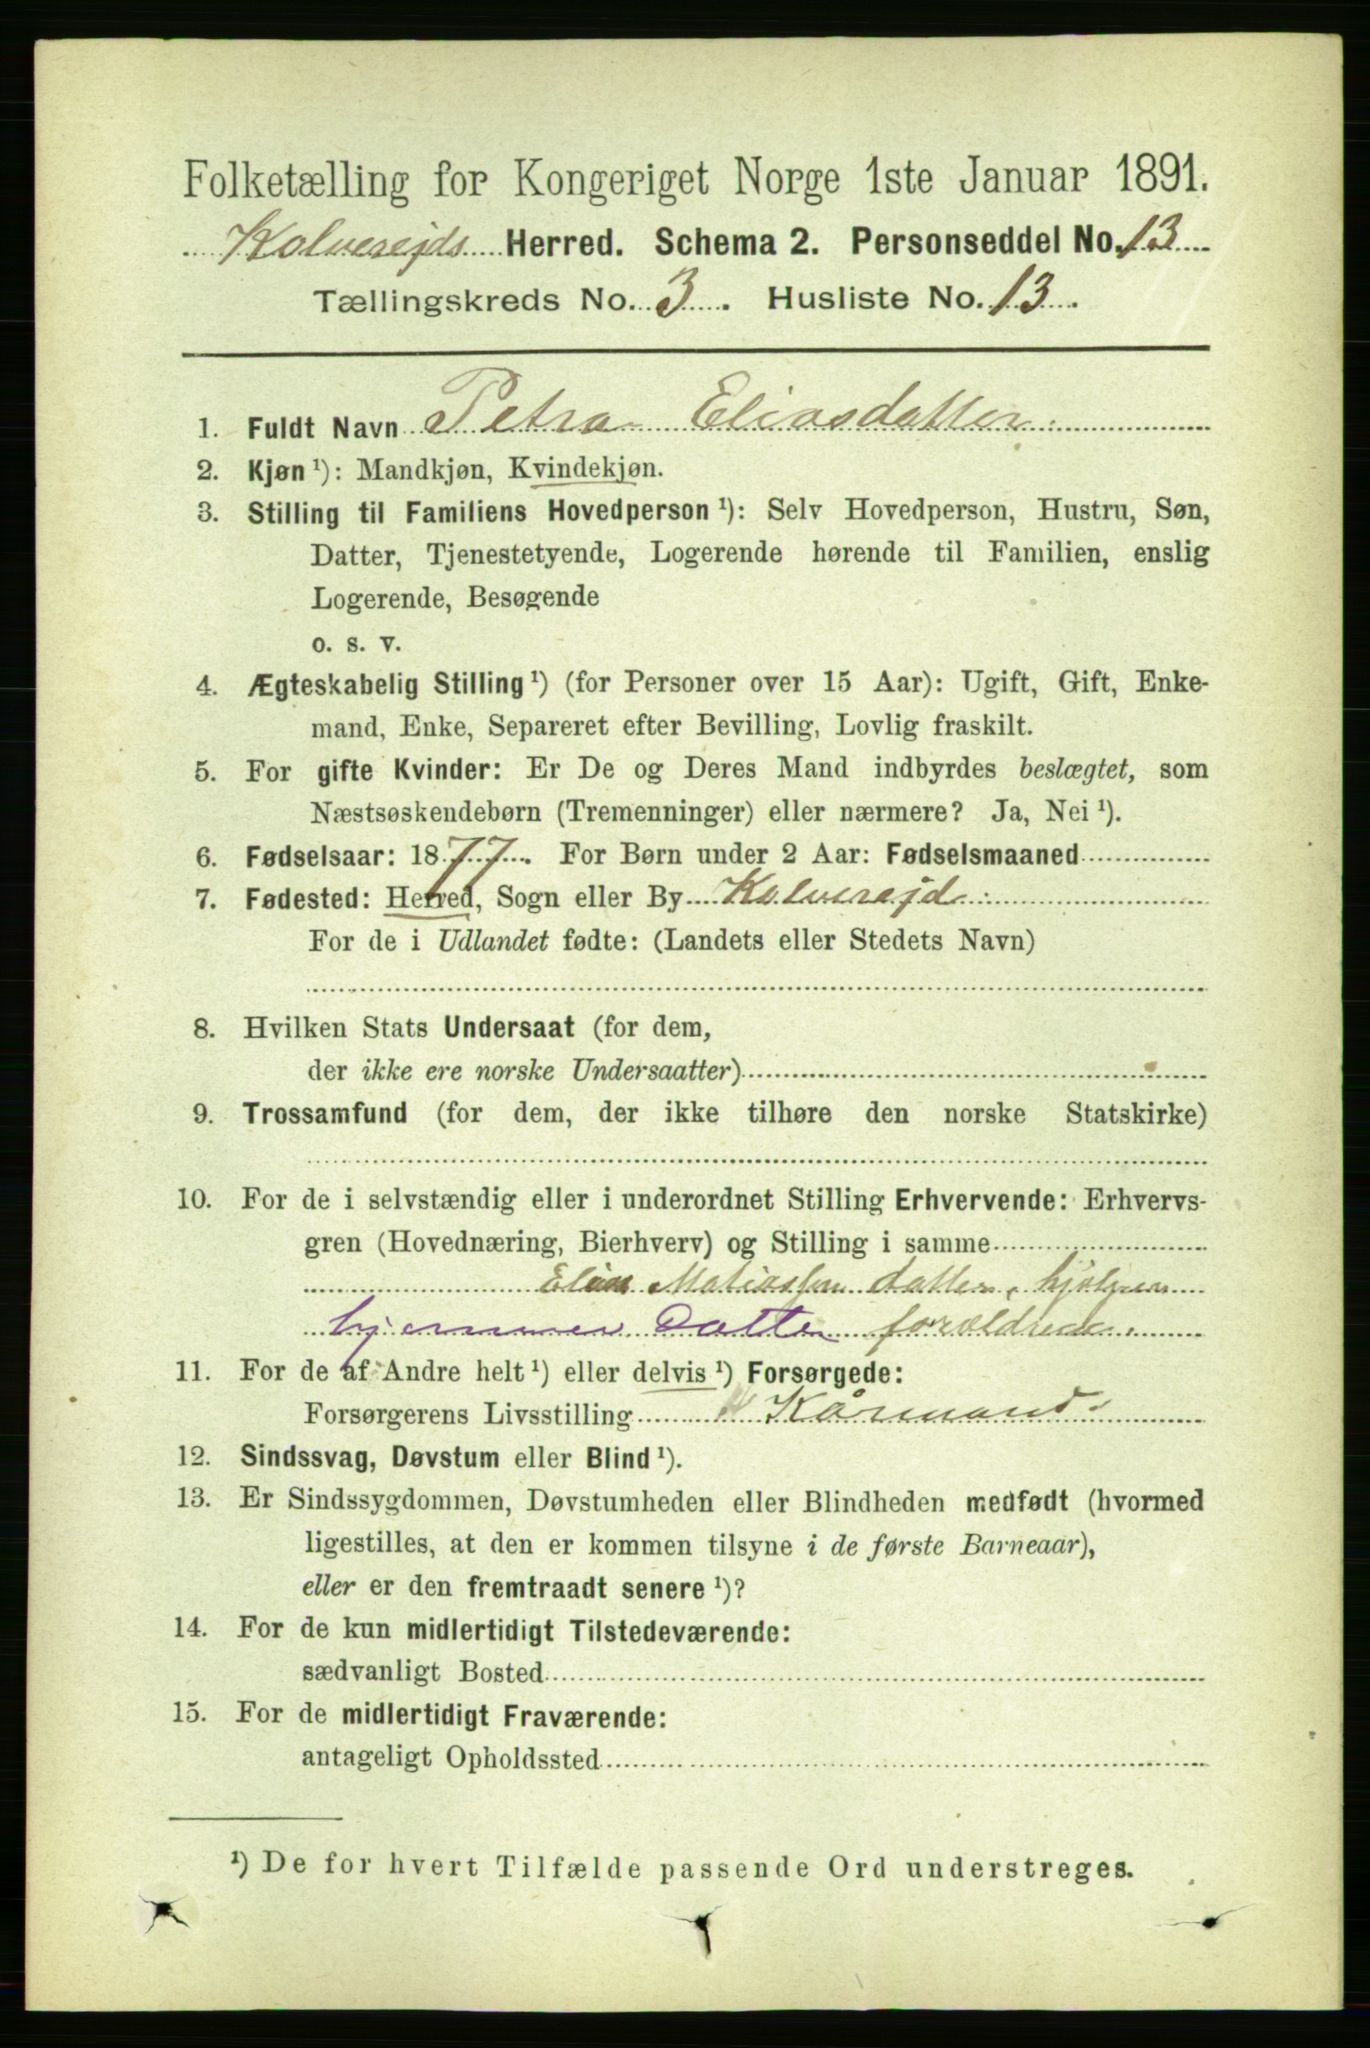 Folketælling for Kongeriget Norge 1ste Januar 1891.
Kolverejds Herred. Schema 2. Personseddel No. 13
Tællingskreds No. 3. Husliste No. 13.
1. Fuldt Navn Petra Eliasdatter
2. Kjøn ¹): Mandkjøn, Kvindekjøn.
3. Stilling til Familiens Hovedperson ¹): Selv Hovedperson, Hustru, Søn,
Datter, Tjenestetyende, Logerende hørende til Familien, enslig
Logerende, Besøgende
o. s. v.
4. Ægteskabelig Stilling ¹) (for Personer over 15 Aar): Ugift, Gift, Enke-
mand, Enke, Separeret efter Bevilling, Lovlig fraskilt.
5. For gifte Kvinder: Er De og Deres Mand indbyrdes beslægtet, som
Næstsøskendebørn (Tremenninger) eller nærmere? Ja, Nei ¹).
6. Fødselsaar: 1877. For Børn under 2 Aar: Fødselsmaaned
7. Fødested: Herred, Sogn eller By Kolverejd
For de i Udlandet fødte: (Landets eller Stedets Navn)
8. Hvilken Stats Undersaat (for dem,
der ikke ere norske Undersaatter)
9. Trossamfund (for dem, der ikke tilhøre den norske Statskirke)
10. For de i selvstændig eller i underordnet Stilling Erhvervende: Erhvervs-
gren (Hovednæring, Bierhverv) og Stilling i samme
Elias Matiassen datter, hjelper
hjemmev Datter forældrene.
11. For de af Andre helt ¹) eller delvis ¹) Forsørgede:
Forsørgerens Livsstilling Kårmand
12. Sindssvag, Døvstum eller Blind ¹).
13. Er Sindssygdommen, Døvstumheden eller Blindheden medfødt (hvormed
ligestilles, at den er kommen tilsyne i de første Barneaar),
eller er den fremtraadt senere ¹)?
14. For de kun midlertidigt Tilstedeværende:
sædvanligt Bosted
15. For de midlertidigt Fraværende:
antageligt Opholdssted
¹) De for hvert Tilfælde passende Ord understreges.